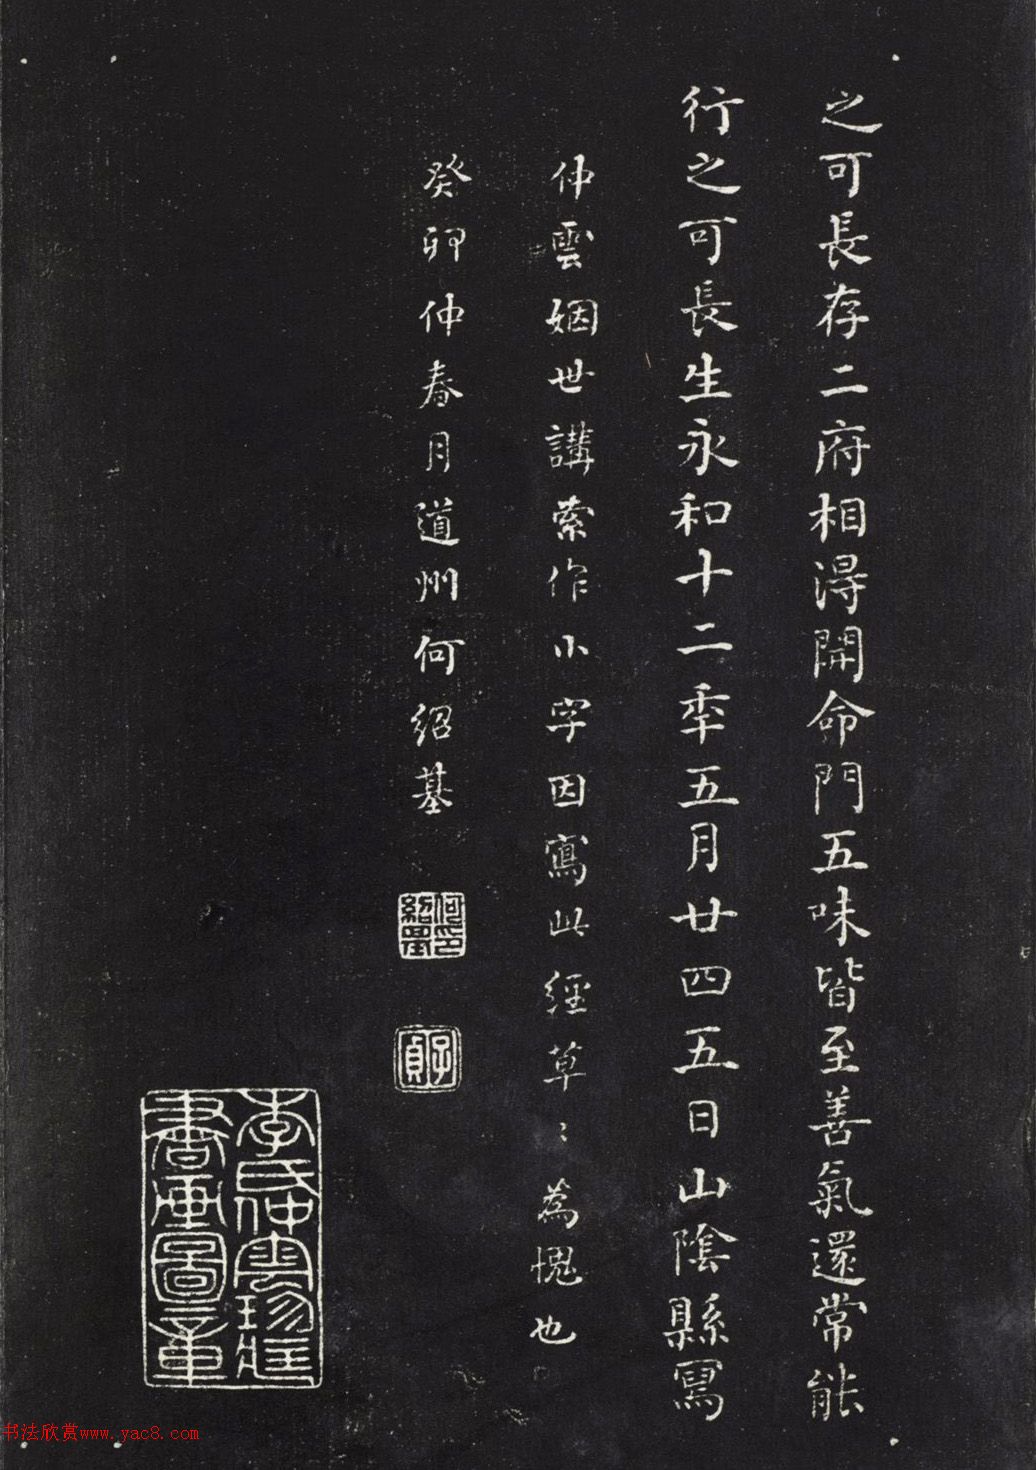 之可長存二府相淂開命門五味皆至善氣還常能
行之可長生永和十二秊五月廿四五日山陰縣寫
仲雲姻世講索作小字因寫此經草〻為愧也
癸卯仲春月道州何紹基
何紹基印
子貞
李氏仲雲珍藏
書画圖章
书法欣赏www.yac8.com